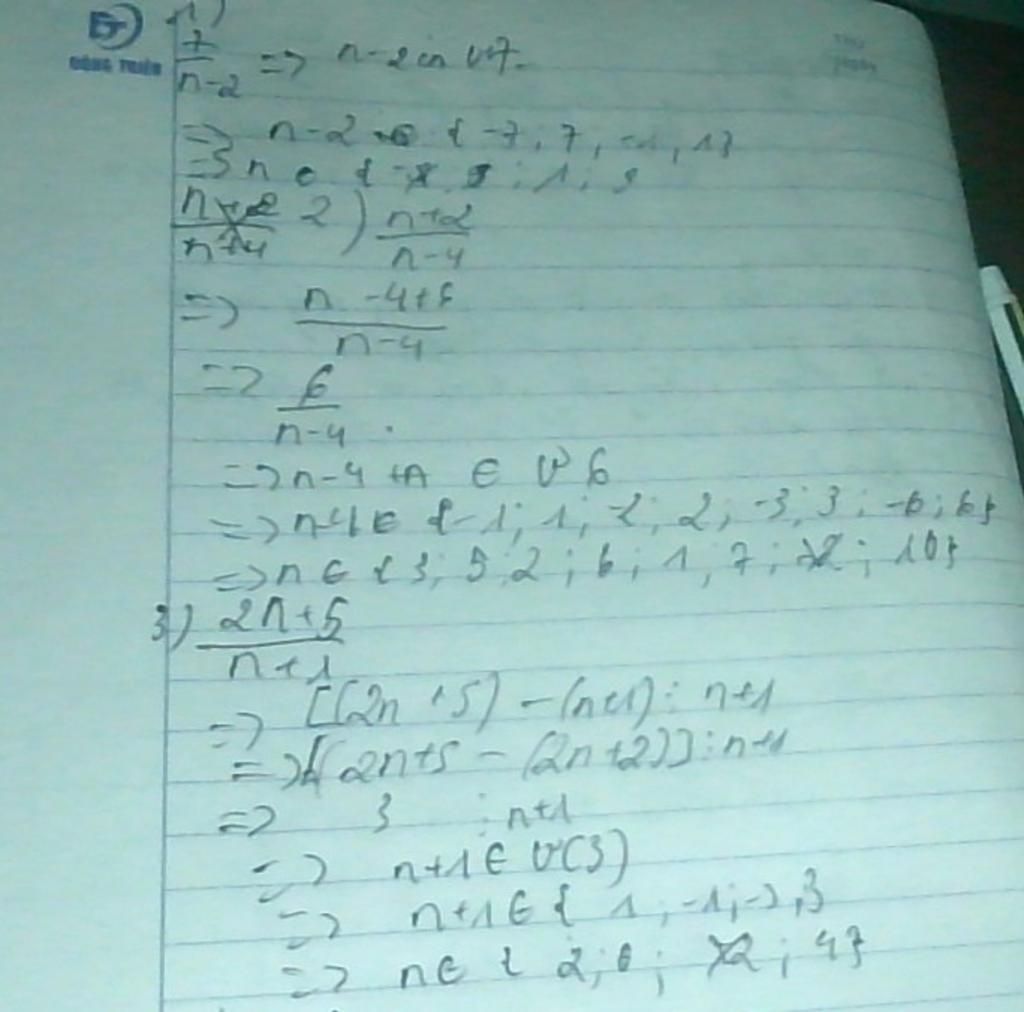 ĐÔNG TRIỀU
1)
7/(n-2) => n-2 Ư 7
=> n-2 ∈ {-7, 7, -1, 1}
=> n ∈ { ; 1 ; 9
2) (n+2)/(n-4)
=> (n -4+6)/(n-4)
=> 6/(n-4).
=> n-4 ∈ Ư 6
=> n-4 ∈ {-1; 1; -2; 2; -3; 3; -6; 6}
=> n ∈ {3; 5; 2; 6; 1; 7; -2; 10}
3) (2n+5)/(n+1)
=> [(2n+5) - (n+1) ⋮ n+1
=> [(2n+5 - (2n+2)] ⋮ n+1
=> 3 ⋮ n+1
=> n+1 ∈ Ư(3)
=> n+1 ∈ { 1; -1; -3, 3
=> n ∈ { 2; 0; ; 4}